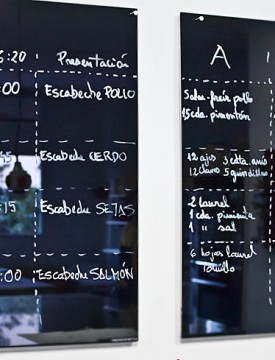 :20 Presentación
:00 Escabeche POLLO
Escabeche CERDO
:15 Escabeche SETAS
:00 Escabeche SALMÓN
A
Salsa-freír pollo
15 cda. pimentón
12 ajos 3 cdta. anís
12 clavos 5 guindillas
2 laurel
1 cda. pimienta
1 " sal
6 hojas laurel
Tomillo